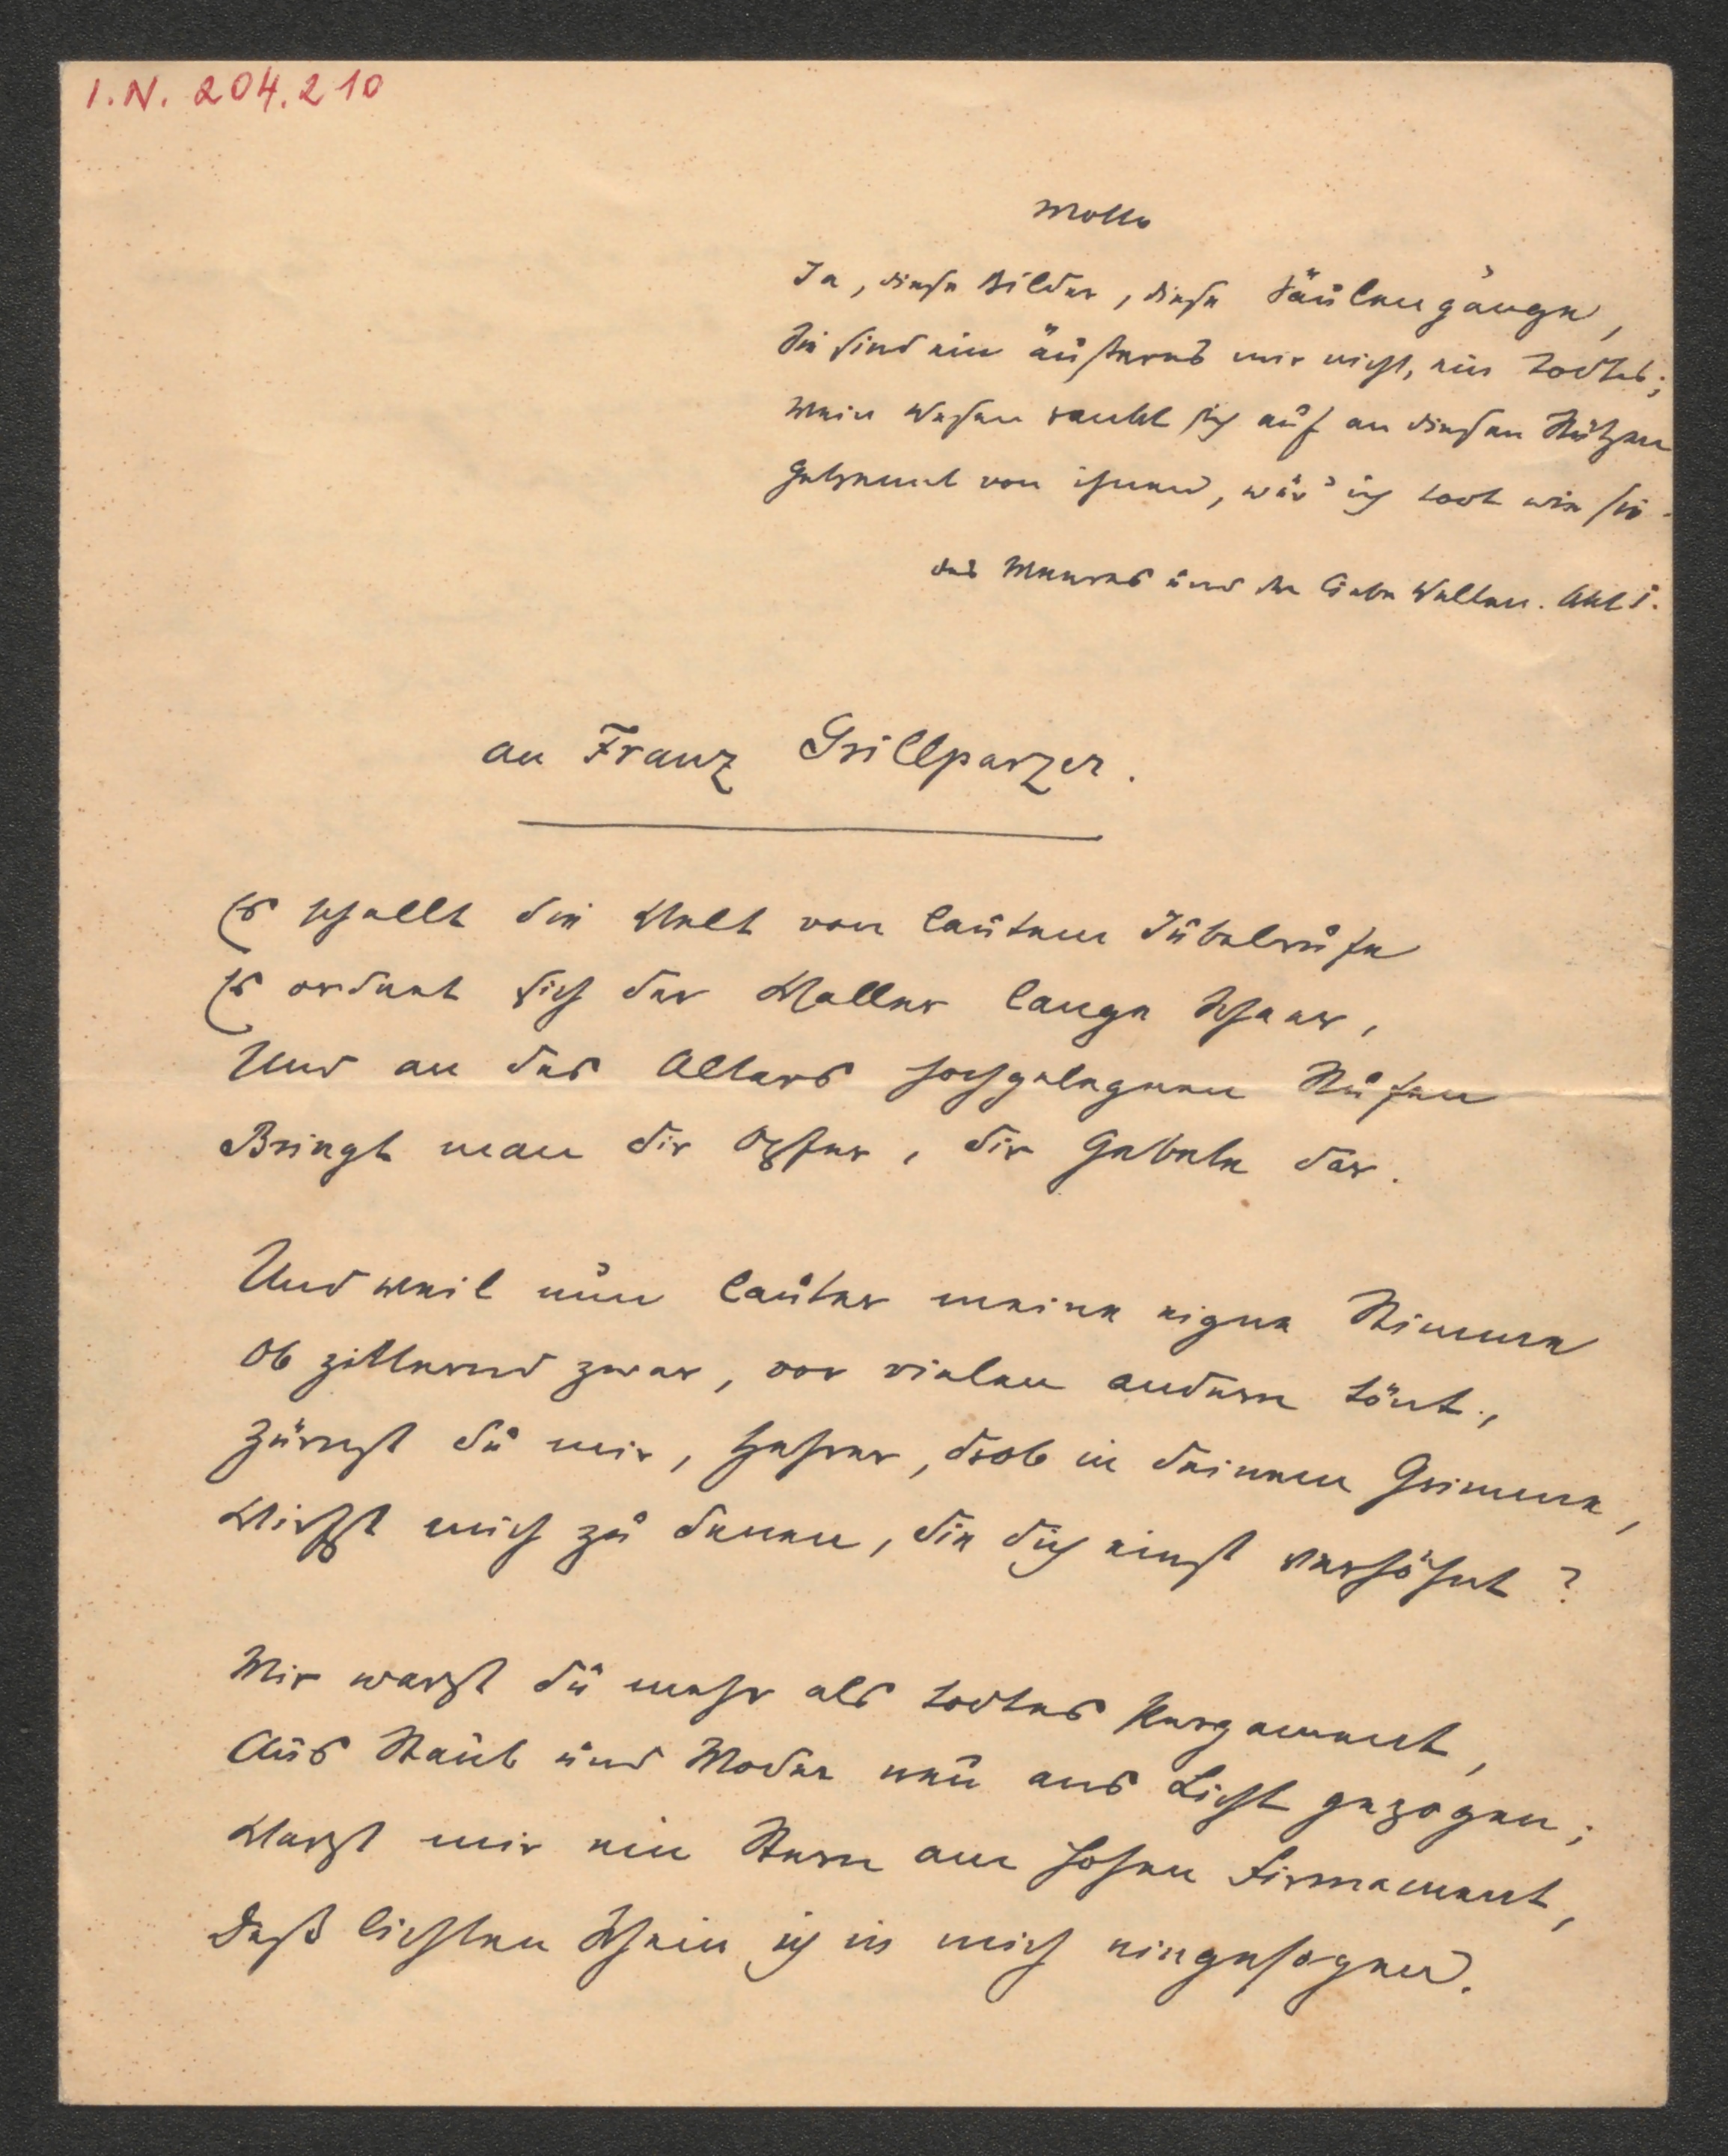 I.N. 204.210
Motto
Ja, diese Bilder, diese Säulengänge,
Sie sind ein äußeres mir nicht, ein todtes;
Mein Wesen rankt sich auf an diesen Stützen
Getrennt von ihnen, wär' ich todt wie sie.
Des Meeres und der Liebe Wellen. Akt I.
an Franz Grillparzer.
Es schallt die Welt von lautem Jubelrufe
Es ordnet sich der Waller lange Schaar,
Und an des Altars hochgelegnen Stufen
Bringt man dir Opfer, dir Gebete dar.
Und weil nun lauter meine eigne Stimme
Ob zitternd zwar, vor vielen andern tönt,
Zürnst du mir, Hehrer, drob in deinem Grimme,
Wirfst mich zu denen, die dich einst verhöhnt?
Mir warst du mehr als todtes Pergament,
Aus Staub und Moder neu ans Licht gezogen;
Warst mir ein Stern am hohen Firmament,
Deß lichten Schein ich in mich eingesogen.